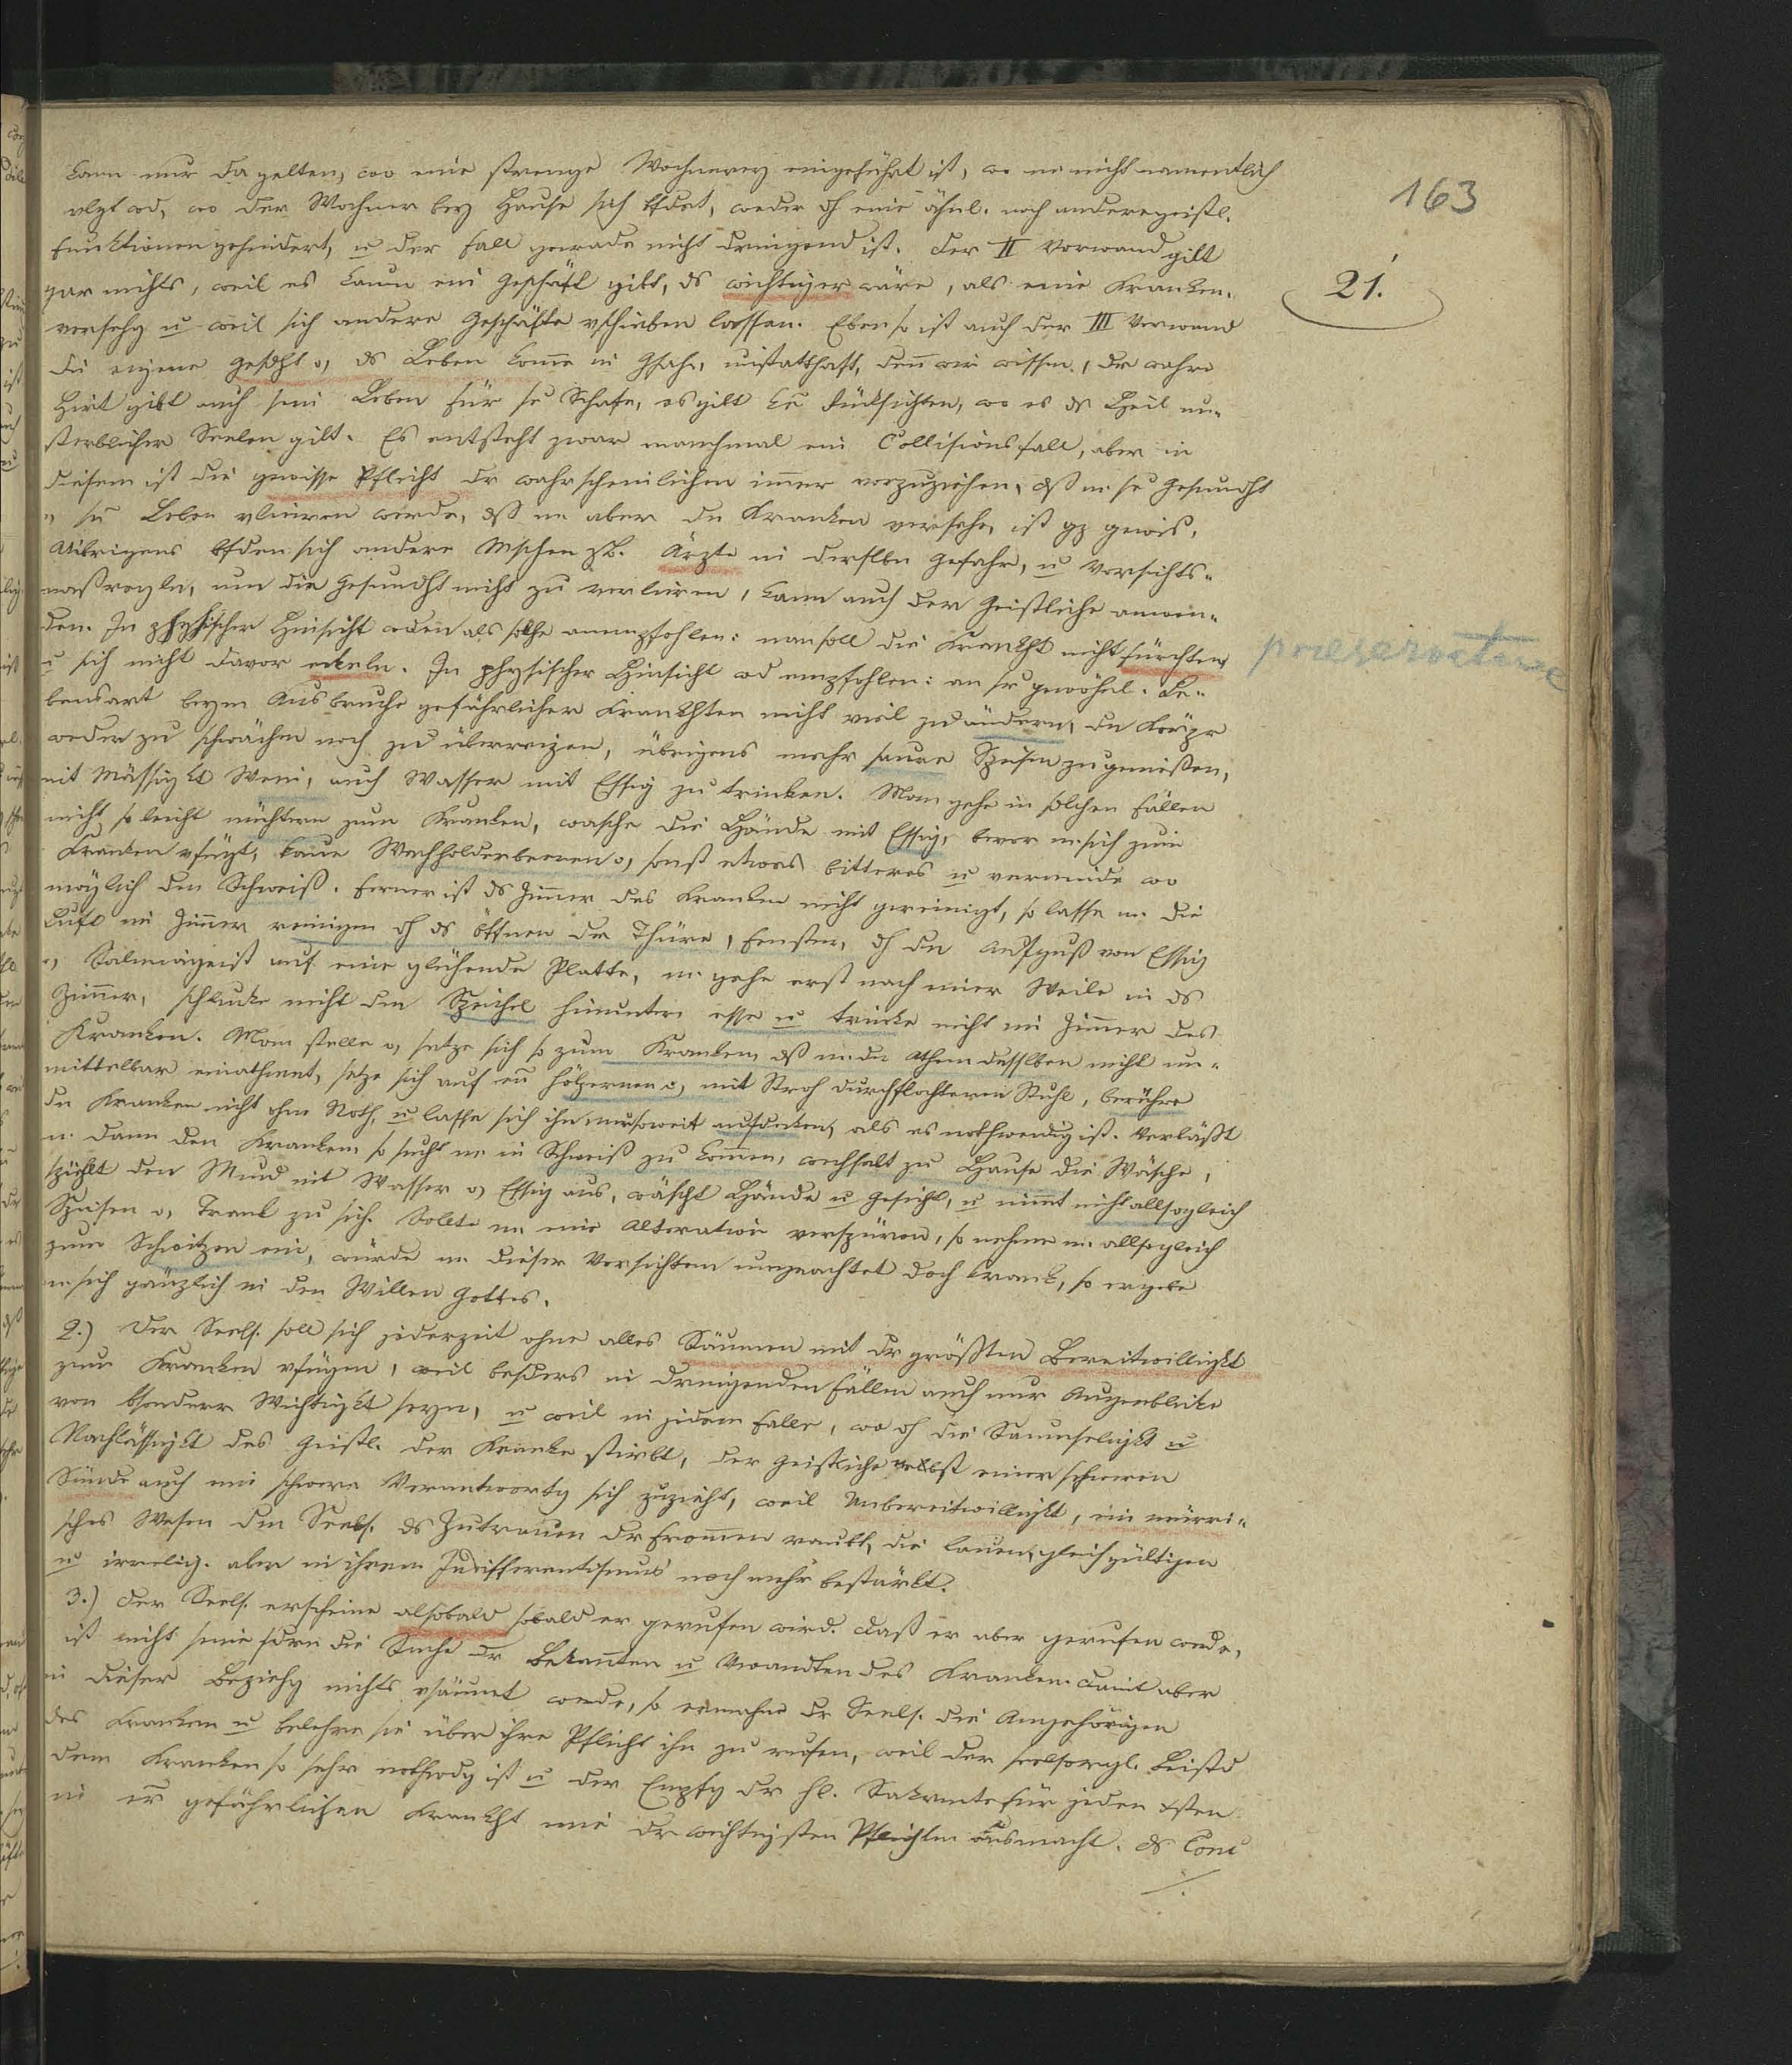 163
kann nur da gelten, wo eine strenge Wochnerey eingeführt ist, wo m nicht namentlich
vlgt wd, wo der Wochner bey Hause sich bfdet, weder dh eine ähnl. noch andere geistl.
Funktionen gehindert, u der Fall gerade nicht dringend ist. Der II Vorwand gilt
21.
gar nichts, weil es kaum ein Geschäft gibt, ds wichtiger wäre, als eine Kranken-
versehg u weil sich andere Geschäfte vschieben lassen. Eben so ist auch der III Vorwand
die eigene Gesdht o, ds Leben kome in Gfahr, unstatthaft, den wir wissen, dr wahre
Hirt gibt auch sein Leben für se Schafe, es gilt ke Rücksichten, wo es ds Heil un-
sterblicher Seelen gilt. Es entsteht zwar manchmal ein Collisionsfall, aber in
diesem ist die gewisse Pflicht dr wahrscheinlichen imer vorzuziehen, dß m se Gesundht
o, se Leben vlieren werde, dß m aber den Kranken versehe, ist gz gewiß.
Uibrigens bfden sich andere Mschen zB. Ärzte in derslben Gefahr, u Vorsichts-
maßregeln, um die Gesundht nicht zu verlieren, kann auch der Geistliche anwen-
den. In physischer Hinsicht wden als solche anempfohlen: man soll die Krankht nicht fürchten,
u sich nicht davor eckeln. In physischer Hinsicht wd empfohlen: an sr gewöhnl. Le-
bensart beym Ausbruche gefährlicher Krankhten nicht viel zu ändern, den Körpr
weder zu schwächen noch zu überreizen, übrigens mehr saure Speisen zu genießen,
mit Mässigkt Wein, auch Wasser mit Essig zu trinken. Man gehe in solchen Fällen
nicht so leicht nüchtern zum Kranken, wasche die Hände mit Essig, bevor m sich zum
Kranken vfügt, kaue Wachholderbeeren o, sonst etwas bitteres u vermeide wo
möglich den Schweiß. Ferner ist ds Zimer des Kranken nicht gereinigt, so lasse m. die
Luft im Zimer reinigen dh ds öffnen der Thüre, Fenster, dh den Aufguß von Essig
o, Salmiageist auf eine glühende Platte, m. gehe erst nach einer Weile in ds
Zimer, schlucke nicht den Speichel hinunter, esse u trinke nicht im Zimer des
Kranken. Man stelle o, setze sich so zum Kranken, dß m. den Athem desslben nicht un-
mittelbar einathmet, setze sich auf en hölzernen o, mit Stroh durchflochtenen Stuhl, berühre
den Kranken nicht ohne Noth, u lasse sich ihn nur soweit aufdecken, als es nothwendig ist. Verläßt
m. dann den Kranken, so sucht m in Schweiß zu komen, wechselt zu Hause die Wäsche,
spühlt den Mund mit Wasser o, Essig aus, wäscht Hände u Gesicht, u nimmt nicht allsogleich
Speisen o, Trank zu sich. Sollte m. eine Alteration verspüren, so nehme m. allsogleich
zum Schwitzen ein, würde m. dieser Vorsichten ungeachtet doch krank, so ergebe
m. sich gänzlich in den Willen Gottes.
2.) Der Seels. soll sich jederzeit ohne alles Säumen mit dr größten Bereitwilligkt
zum Kranken vfügen, weil besders in dringenden Fällen auch nur Augenblicke
von bsonderer Wichtigkt seyn, u weil in jedem Falle, wo dh die Saumseligkt u
Nachlässigkt des Geistl. der Kranke stirbt, der Geistliche nebst einer schweren
Sünde auch eine schwere Verantwortg sich zuzieht, weil Unbereitwilligkt, ein mürri-
sches Wesen den Seels. ds Zutrauen dr Fromen raubt, die lauen, gleichgültigen
u irrelig. aber in ihrem Indifferentismus noch mehr bestärkt.
3.) Der Seels. erscheine alsobald sobald er gerufen wird. Daß er aber gerufen wede,
ist nicht seine sdrn die Sache dr Bekannten u Vwandten des Kranken. Damit aber
in dieser Beziehg nichts vsäumt wede, so ermahne dr Seels. die Angehörigen
des Kranken u belehre sie über ihre Pflicht ihn zu rufen, weil der seelsorgl. Beistd
dem Kranken so sehr nothwdg ist u der Empfg dr hl. Sakramte für jeden Xsten
in er gefährlichen Krankht eine dr wichtigsten Pflichten ausmacht. Ds Conc
./.